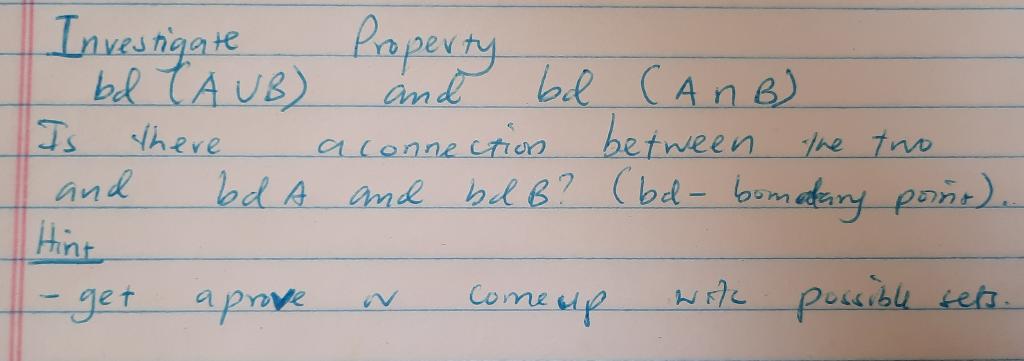 Investigate Property
bd (A ∪ B) and bd (A ∩ B)
Is there a connection between the two
and bd A and bd B? (bd - boundary point).
Hint
- get a prove or come up with possible sets.